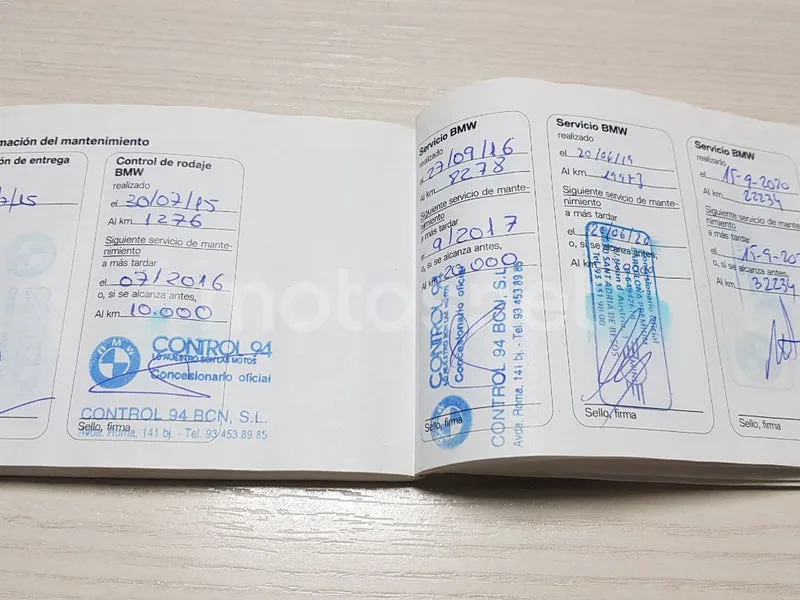 mación del mantenimiento
ón de entrega
7/15
Control de rodaje
BMW
realizado
el 30/07/15
Al km 1276
Siguiente servicio de mante-
nimiento
a más tardar
el 07/2016
o, si se alcanza antes,
Al km 10.000
BMW
CONTROL 94
LO NUESTRO SON LAS MOTOS
Concesionario oficial
CONTROL 94 BCN, S.L.
Avda. Roma, 141 bj. - Tel. 93 453 89 85
Sello, firma
Servicio BMW
realizado
el 27/09/16
Al km 8278
Siguiente servicio de mante-
nimiento
a más tardar
9/2017
o, si se alcanza antes,
Al km 20.000
CONTROL 94
LO NUESTRO SON LAS MOTOS
Concesionario oficial
CONTROL 94 BCN, S.L.
Avda. Roma, 141 bj. - Tel. 93 453 89 85
Sello, firma
Servicio BMW
realizado
el 20/06/19
Al km
Siguiente servicio de mante-
nimiento
a más tardar
el 20/06/20
o, si se alcanza antes,
Al km
Concesionario Oficial
BARCELONA PREMIUM
SANT ADRIÀ DE BESÒS
Sello, firma
Servicio BMW
realizado
el 15-9-2020
Al km 22234
Siguiente servicio de mante-
nimiento
a más tardar
el 15-9-202
o, si se alcanza antes,
Al km 32234
Sello, firma